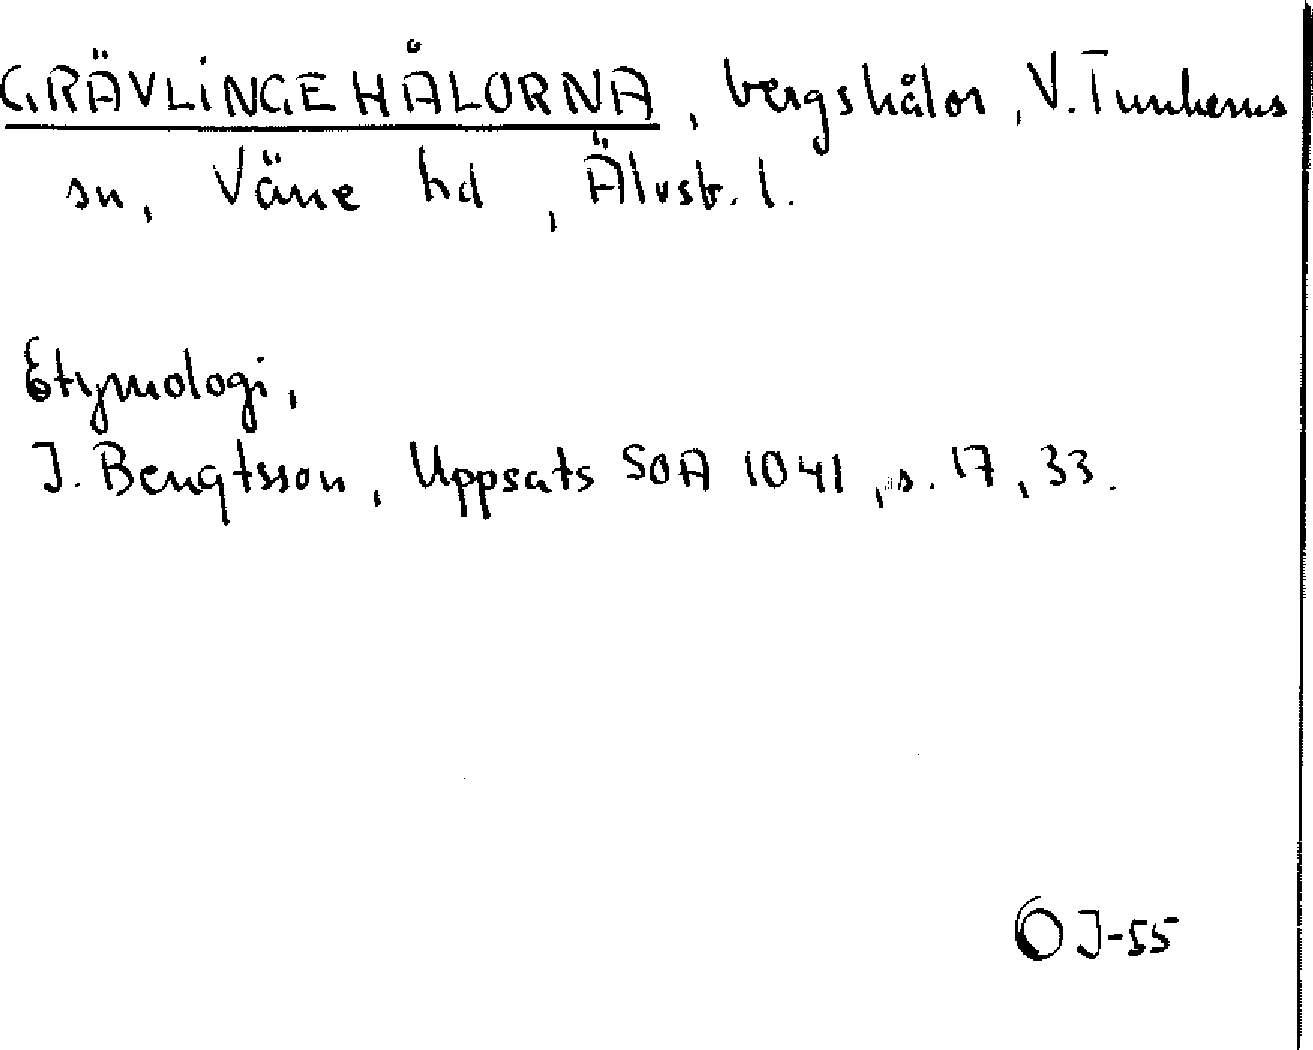 GRÄVLINGEHÅLORNA, bergshålor, V. Tunhems
sn, Väne hd, Älvsb. l.
Etymologi,
J. Bengtsson, Uppsats SOA 1041, s. 17, 33.
OJ-55